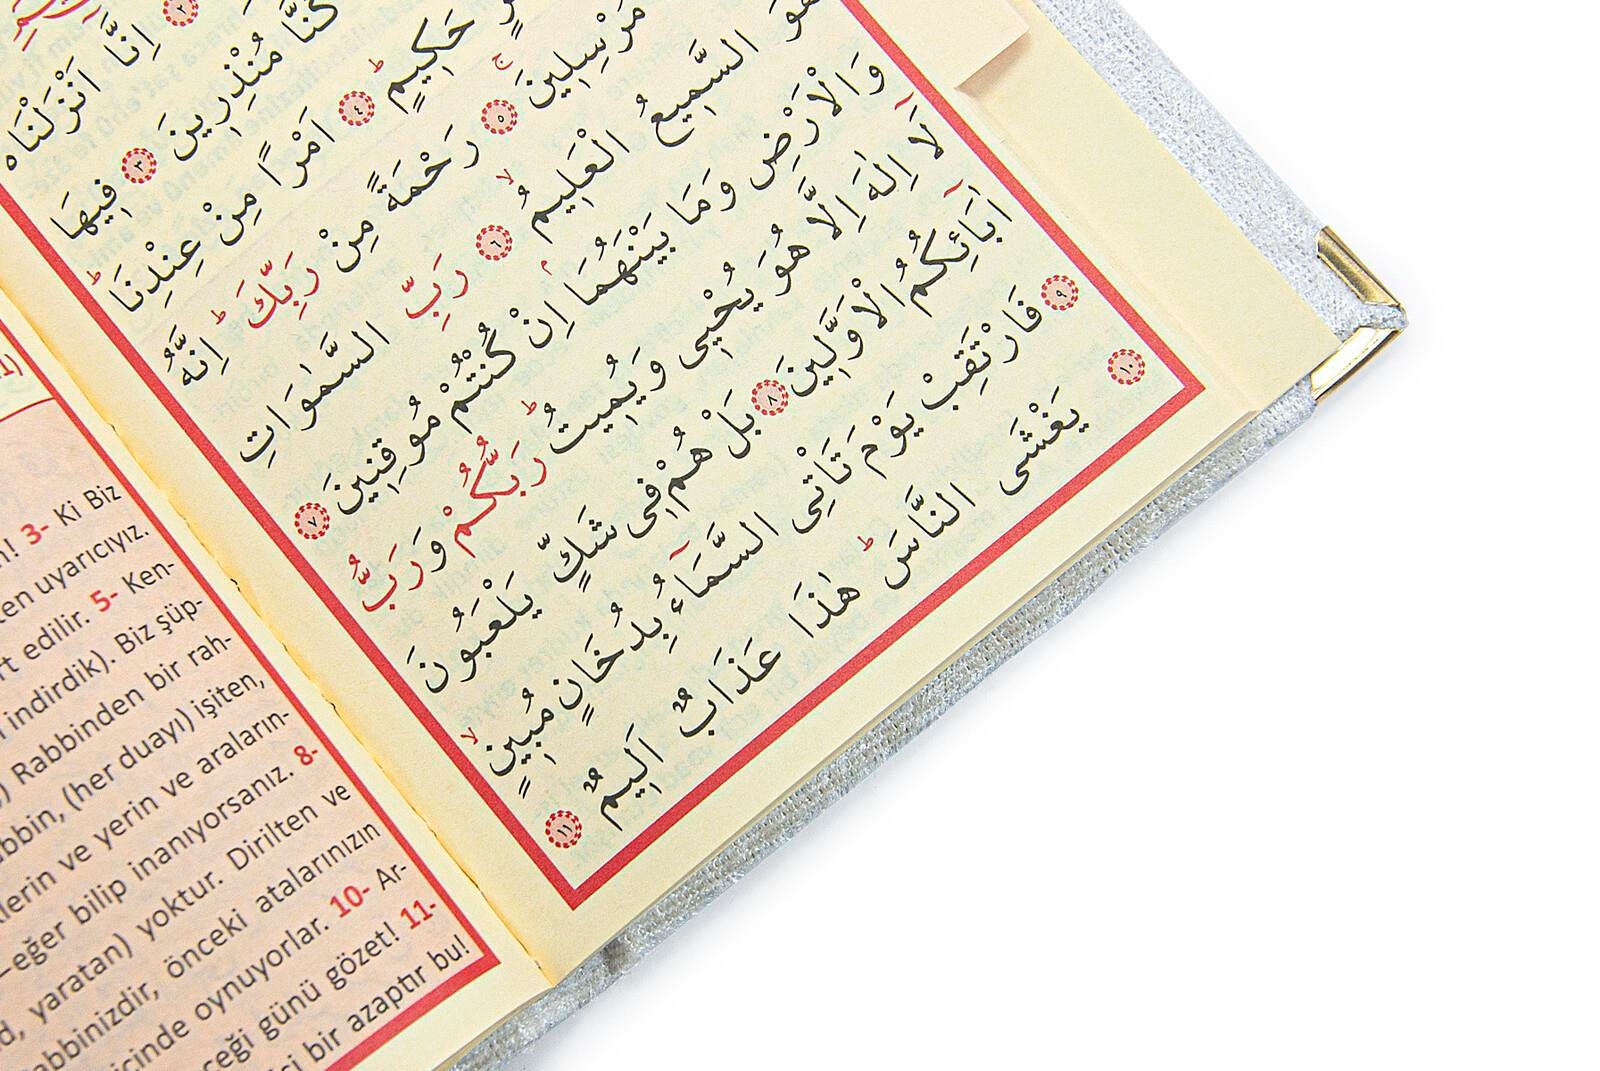 اِنَّٓا اَنْزَلْنَاهُ
كُنَّا مُنْذِرِينَ ﴿٣﴾ فِيهَا
حَكِيمٍ ﴿٤﴾ اَمْرًا مِنْ عِنْدِنَا
مُرْسِلِينَ ﴿٥﴾ رَحْمَةً مِنْ رَبِّكَ اِنَّهُ
هُوَ السَّمِيعُ الْعَلِيمُ ﴿٦﴾ رَبِّ السَّمٰوَاتِ
وَالْاَرْضِ وَمَا بَيْنَهُمَا اِنْ كُنْتُمْ مُوقِنِينَ ﴿٧﴾
لَٓا اِلٰهَ اِلَّا هُوَ يُحْيِى وَيُمِيتُ رَبُّكُمْ وَرَبُّ
اٰبَٓائِكُمُ الْاَوَّلِينَ ﴿٨﴾ بَلْ هُمْ فِى شَكٍّ يَلْعَبُونَ
﴿٩﴾ فَارْتَقِبْ يَوْمَ تَاْتِى السَّمَٓاءُ بِدُخَانٍ مُبِينٍ
﴿١٠﴾ يَغْشَى النَّاسَ هٰذَا عَذَابٌ اَلِيمٌ ﴿١١﴾
3- Ki Biz
uyarıcıyız.
edilir. 5- Ken-
indirdik). Biz şüp-
Rabbinden bir rah-
(her duayı) işiten,
ve yerin ve araların-
eğer bilip inanıyorsanız. 8-
yaratan) yoktur. Dirilten ve
önceki atalarınızın
oynuyorlar. 10- Ar-
günü gözet! 11-
bir azaptır bu!